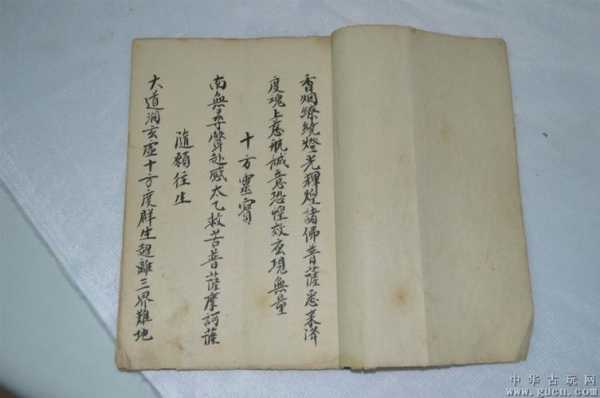 香烟繚繞燈光輝煌諸佛菩薩悉來濟
度魂上慈航誠意恐惶效玄現無量
十方靈寶
南無尋聲赴感太乙救苦菩薩摩訶薩
隨願往生
大道洞玄虛十方度群生超離三界難地
中华古玩网
www.gucn.com